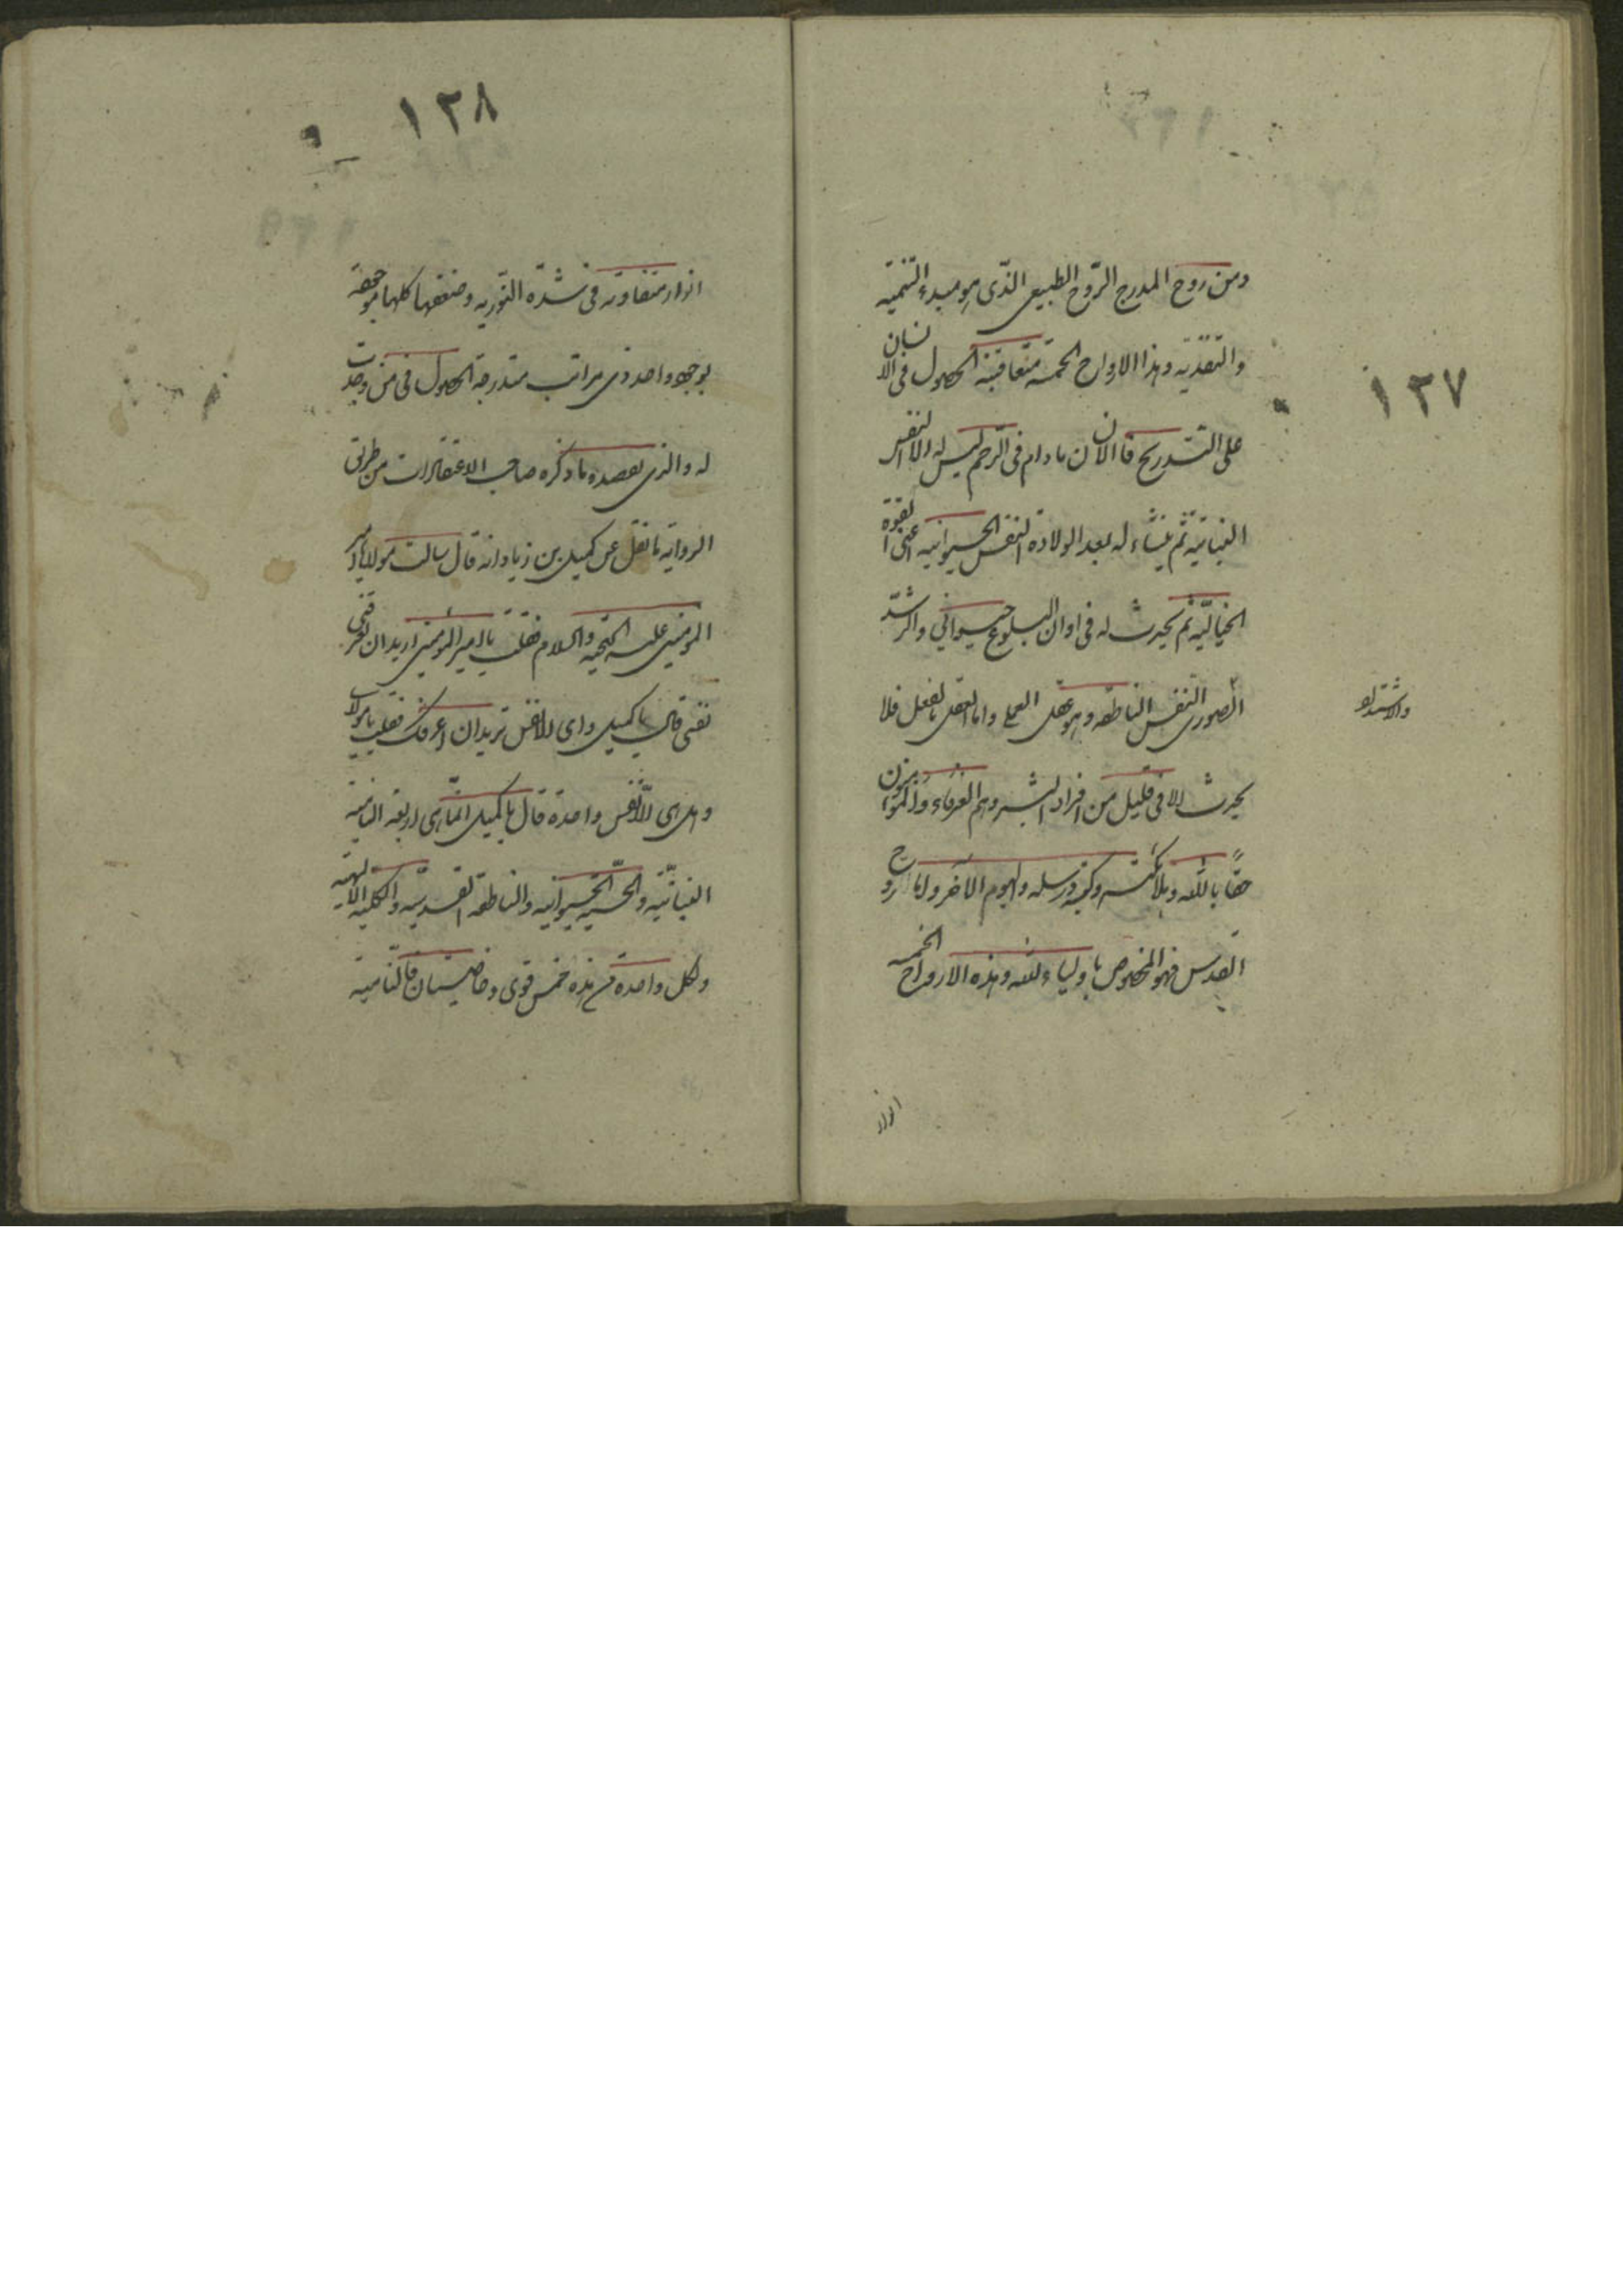 ١٢٧
ومن روح المدرج الرّوح الطبيعى الذّى هو مبدء التّنميّه
والتّغذيه وهذا الارواح الخمسه متعاقبة الحصول فى الانسان
على التّدريج فالانسان مادام فى الرّحم ليس له الا النفس
النباتيّه ثم ينشاء له بعد الولادة النفس الحيوانيه اعنى القوة
الخياليّه ثم يحدث له فى اوان البلوغ حيوانى والرشد
الصورى النفس الناطقه وهو عقل العملى واما العقل بالفعل فلا
والاشتداد
يحدث الا فى قليل من افراد البشر وهم العرفاء والمؤمنون
حقاً باللّه وملائكته وكتبه ورسله واليوم الآخر واما روح
القدس فهو المخصوص باولياء اللّه وهذه الارواح الخمسه
انوار
١٢٨
انوار متفاوته فى شدّة النّوريه وضعفها كلها موجودة
بوجود واحد ذى مراتب متدرجة الحصول فى من وجدت
له والذى يعضده ما ذكره صاحب الاعتقادات من طريق
الروايه ما نقل عن كميل بن زياد انه قال سالت مولانا امير
المؤمنين عليه التحيّه والسلام فقلت يا امير المؤمنين اريد ان تعرفنى
نفسى قال يا كميل واى الانفس تريد ان اعرفك فقلت يا مولاى
وهل هى الّا نفس واحدة قال يا كميل انّما هى اربعة النامية
النباتيّه والحسيّه الحيوانيه والناطقة القدسيّه والكليه الالهيّه
ولكل واحدة من هذه خمس قوى وخاصيتان فالنّاميّه